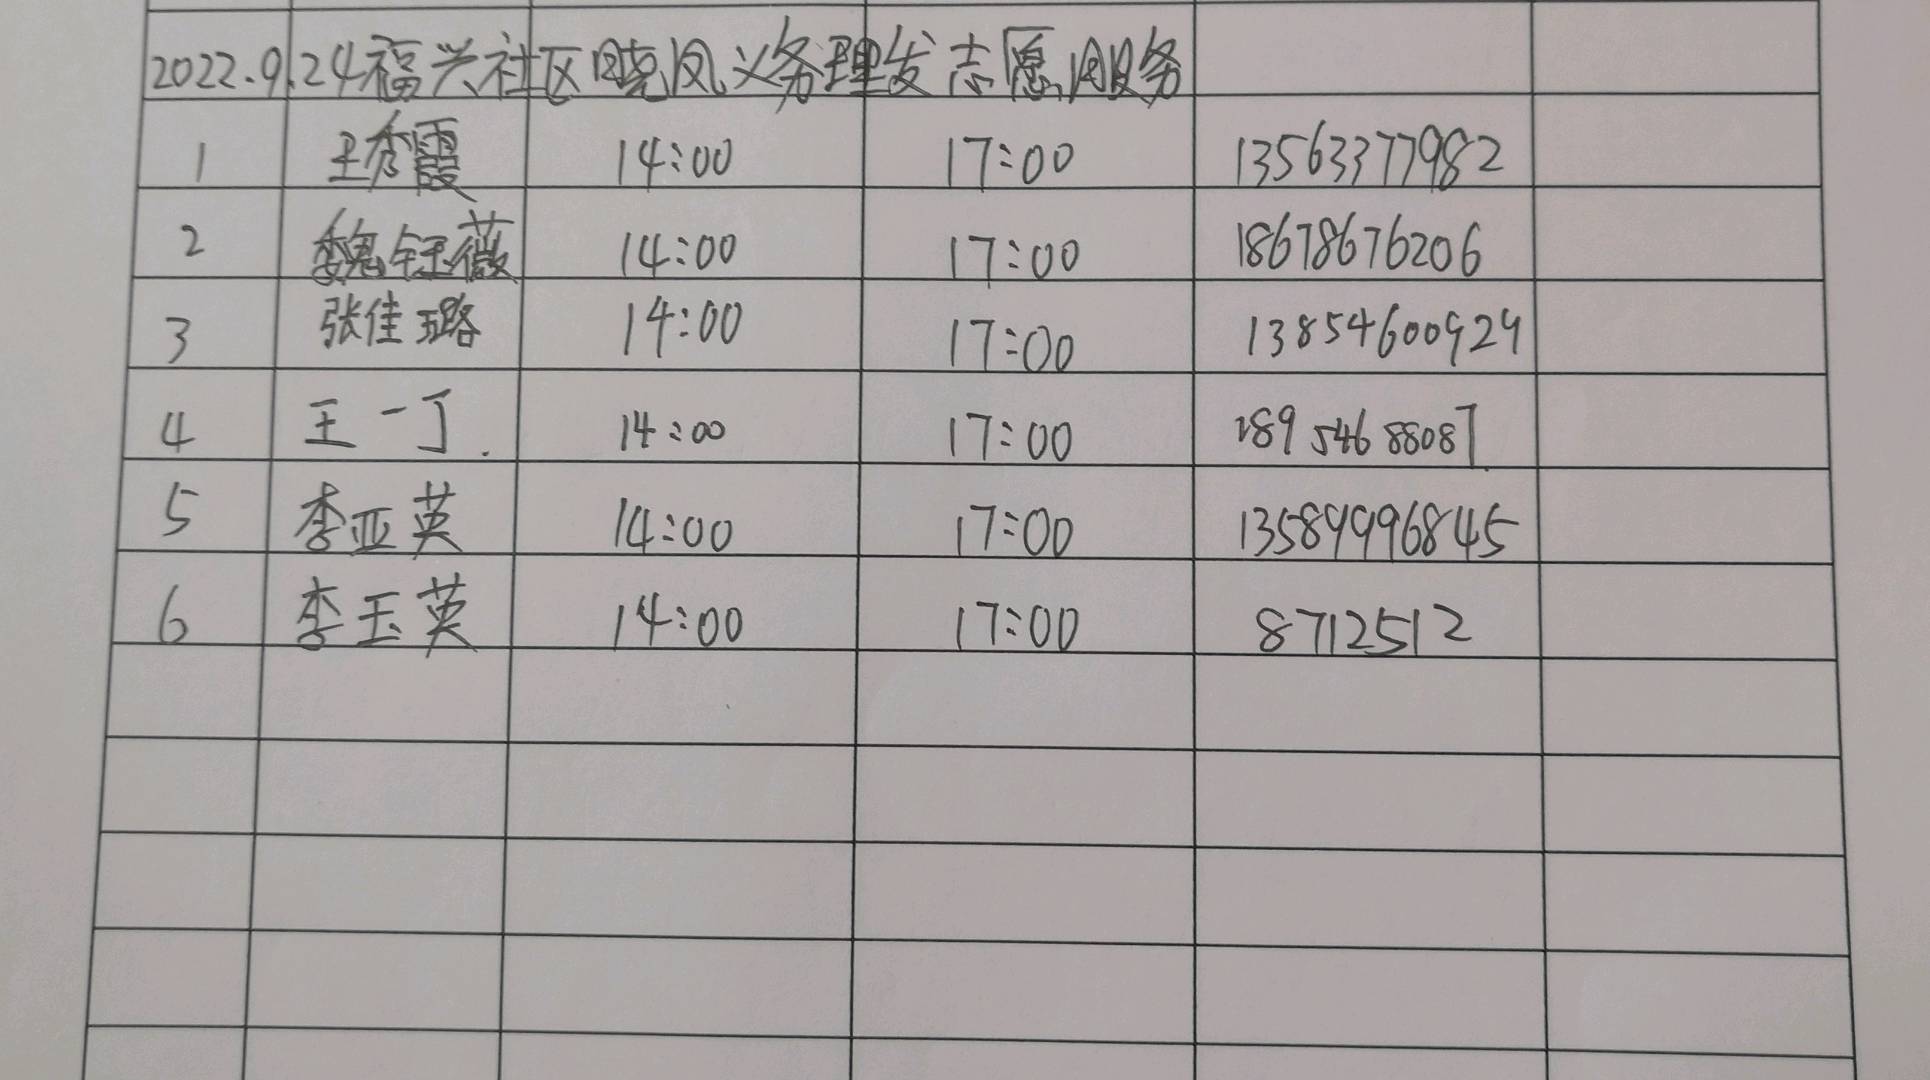 2022.9.24福兴社区晓凤义务理发志愿服务
1 王秀霞 14:00 17:00 13563377982
2 魏钰薇 14:00 17:00 18678676206
3 张佳璐 14:00 17:00 13854600924
4 王一丁. 14:00 17:00 18954688087
5 李亚英 14:00 17:00 13589996845
6 李玉英 14:00 17:00 8712512